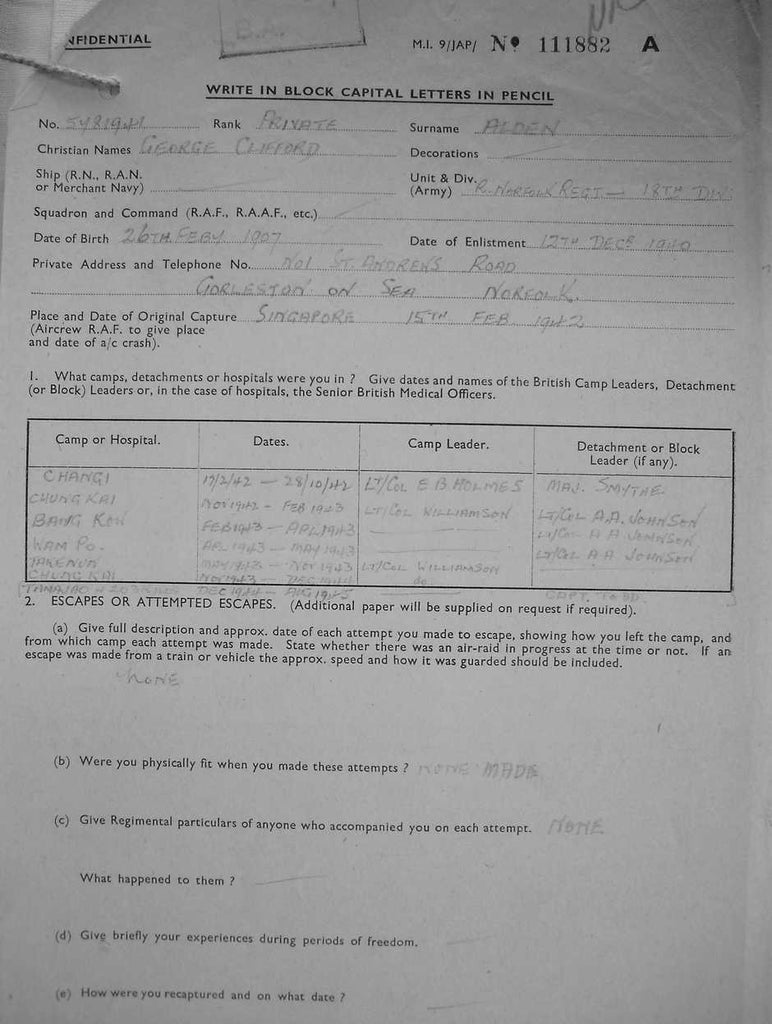 NFIDENTIAL
M.I. 9/JAP/ Nº 111882 A
WRITE IN BLOCK CAPITAL LETTERS IN PENCIL
No. Rank PRIVATE Surname ALDEN
Christian Names GEORGE CLIFFORD Decorations
Ship (R.N., R.A.N. or Merchant Navy) Unit & Div. (Army) R. NORFOLK REGT — 18TH DIV.
Squadron and Command (R.A.F., R.A.A.F., etc.)
Date of Birth 26TH FEBY 1907 Date of Enlistment 12TH DECR 1940
Private Address and Telephone No. ST. ANDREWS ROAD
GORLESTON ON SEA NORFOLK.
Place and Date of Original Capture SINGAPORE 15TH FEB 1942
(Aircrew R.A.F. to give place
and date of a/c crash).
1. What camps, detachments or hospitals were you in ? Give dates and names of the British Camp Leaders, Detachment
(or Block) Leaders or, in the case of hospitals, the Senior British Medical Officers.
Camp or Hospital. Dates. Camp Leader. Detachment or Block Leader (if any).
CHANGI 17/2/42 — 28/10/42 LT/COL E B HOLMES MAJ. SMYTHE
CHUNG KAI NOV 1942 — FEB 1943 LT/COL WILLIAMSON LT/COL A.A. JOHNSON
BANG KOW FEB 1943 — APL 1943 LT/COL A A JOHNSON
WAM PO. APL 1943 — MAY 1943 LT/COL A A JOHNSON
TAKENUN MAY 1943 — NOV 1943 LT/COL WILLIAMSON
CHUNG KAI NOV 1943 — DEC 1944 do
DEC 1944 — AUG 1945
2. ESCAPES OR ATTEMPTED ESCAPES. (Additional paper will be supplied on request if required).
(a) Give full description and approx. date of each attempt you made to escape, showing how you left the camp, and
from which camp each attempt was made. State whether there was an air-raid in progress at the time or not. If an
escape was made from a train or vehicle the approx. speed and how it was guarded should be included.
NONE
(b) Were you physically fit when you made these attempts ? NONE MADE
(c) Give Regimental particulars of anyone who accompanied you on each attempt. NONE
What happened to them ?
(d) Give briefly your experiences during periods of freedom.
(e) How were you recaptured and on what date ?